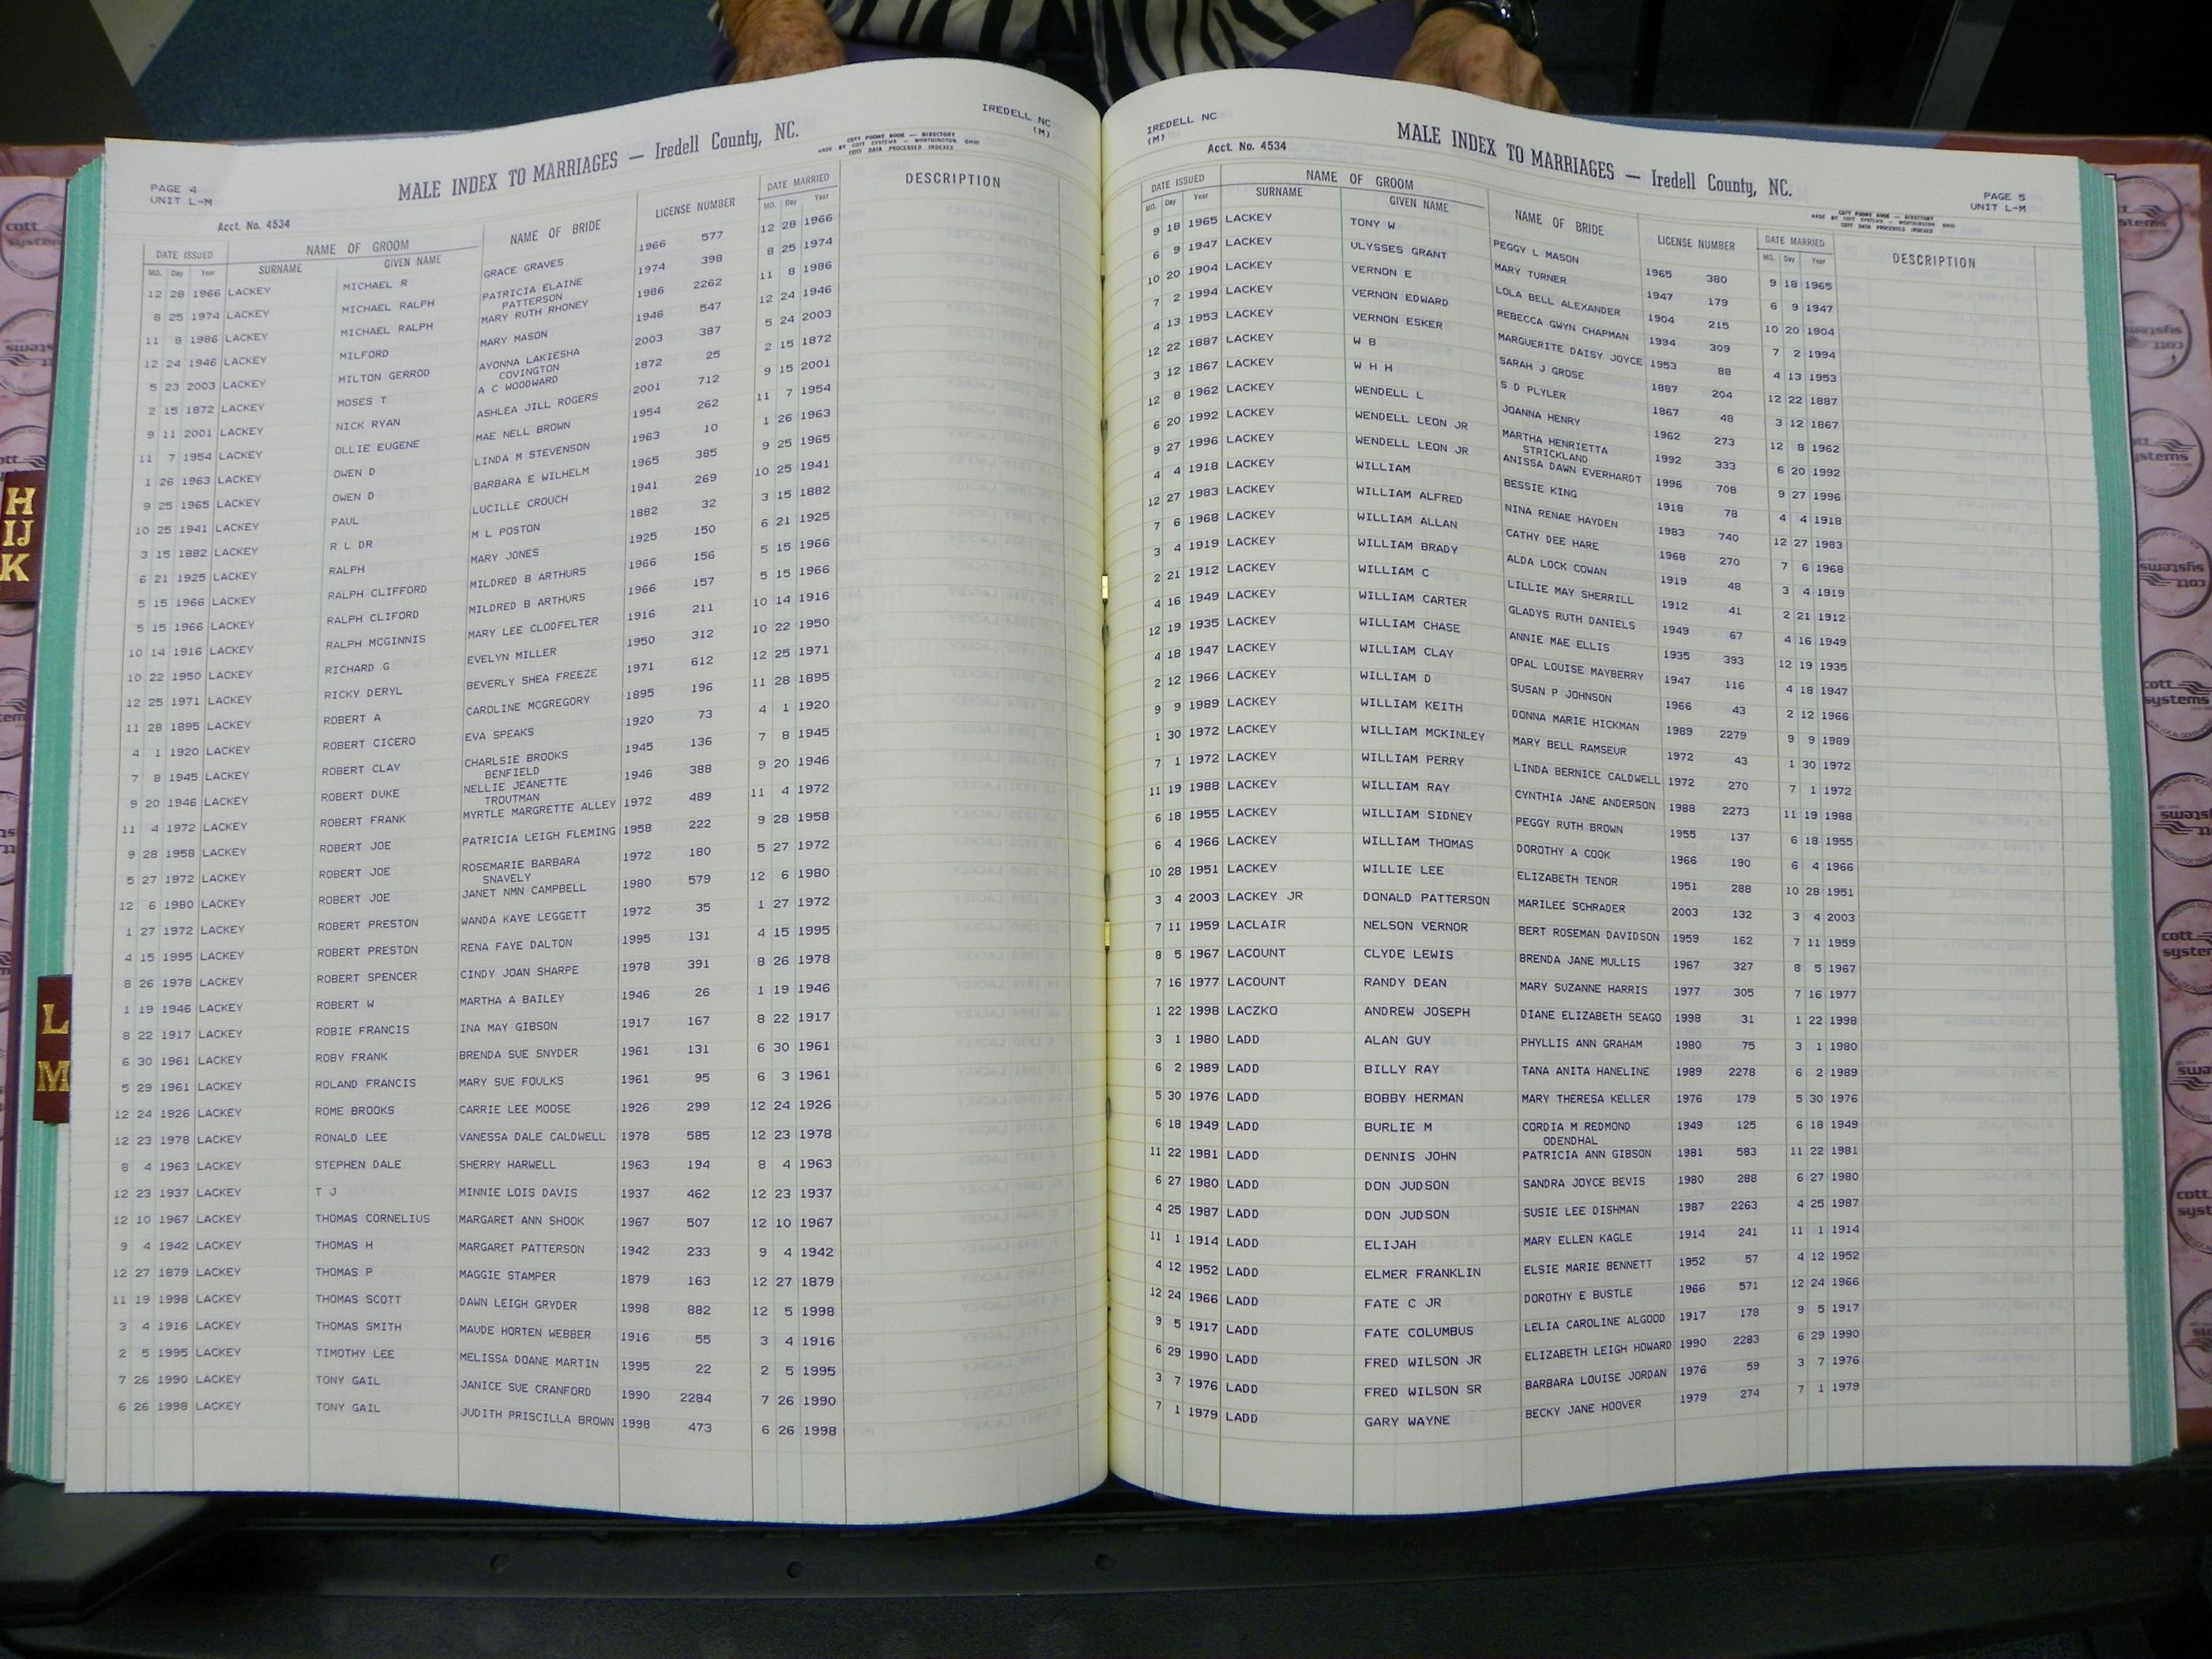 IREDELL NC
(M)
MALE INDEX TO MARRIAGES — Iredell County, NC.
COTT PHONE BOOK — DIRECTORY
MADE BY COTT SYSTEMS — WORTHINGTON, OHIO
COTT DATA PROCESSED INDEXES
PAGE 4
UNIT L-M
Acct. No. 4534
DATE ISSUED NAME OF GROOM NAME OF BRIDE LICENSE NUMBER DATE MARRIED DESCRIPTION
MO. Day Year SURNAME GIVEN NAME MO. Day Year
12 28 1966 LACKEY MICHAEL R GRACE GRAVES 1966 577 12 28 1966
8 25 1974 LACKEY MICHAEL RALPH PATRICIA ELAINE 1974 398 8 25 1974
PATTERSON
11 8 1986 LACKEY MICHAEL RALPH MARY RUTH RHONEY 1986 2262 11 8 1986
12 24 1946 LACKEY MILFORD MARY MASON 1946 547 12 24 1946
5 23 2003 LACKEY MILTON GERROD AYONNA LAKIESHA 2003 387 5 24 2003
COVINGTON
2 15 1872 LACKEY MOSES T A C WOODWARD 1872 25 2 15 1872
9 11 2001 LACKEY NICK RYAN ASHLEA JILL ROGERS 2001 712 9 15 2001
11 7 1954 LACKEY OLLIE EUGENE MAE NELL BROWN 1954 262 11 7 1954
1 26 1963 LACKEY OWEN D LINDA M STEVENSON 1963 10 1 26 1963
9 25 1965 LACKEY OWEN D BARBARA E WILHELM 1965 385 9 25 1965
10 25 1941 LACKEY PAUL LUCILLE CROUCH 1941 269 10 25 1941
3 15 1882 LACKEY R L DR M L POSTON 1882 32 3 15 1882
6 21 1925 LACKEY RALPH MARY JONES 1925 150 6 21 1925
5 15 1966 LACKEY RALPH CLIFFORD MILDRED B ARTHURS 1966 156 5 15 1966
5 15 1966 LACKEY RALPH CLIFORD MILDRED B ARTHURS 1966 157 5 15 1966
10 14 1916 LACKEY RALPH MCGINNIS MARY LEE CLODFELTER 1916 211 10 14 1916
10 22 1950 LACKEY RICHARD G EVELYN MILLER 1950 312 10 22 1950
12 25 1971 LACKEY RICKY DERYL BEVERLY SHEA FREEZE 1971 612 12 25 1971
11 28 1895 LACKEY ROBERT A CAROLINE MCGREGORY 1895 196 11 28 1895
4 1 1920 LACKEY ROBERT CICERO EVA SPEAKS 1920 73 4 1 1920
7 8 1945 LACKEY ROBERT CLAY CHARLSIE BROOKS 1945 136 7 8 1945
BENFIELD
9 20 1946 LACKEY ROBERT DUKE NELLIE JEANETTE 1946 388 9 20 1946
TROUTMAN
11 4 1972 LACKEY ROBERT FRANK MYRTLE MARGRETTE ALLEY 1972 489 11 4 1972
9 28 1958 LACKEY ROBERT JOE PATRICIA LEIGH FLEMING 1958 222 9 28 1958
5 27 1972 LACKEY ROBERT JOE ROSEMARIE BARBARA 1972 180 5 27 1972
SNAVELY
12 6 1980 LACKEY ROBERT JOE JANET NMN CAMPBELL 1980 579 12 6 1980
1 27 1972 LACKEY ROBERT PRESTON WANDA KAYE LEGGETT 1972 35 1 27 1972
4 15 1995 LACKEY ROBERT PRESTON RENA FAYE DALTON 1995 131 4 15 1995
8 26 1978 LACKEY ROBERT SPENCER CINDY JOAN SHARPE 1978 391 8 26 1978
1 19 1946 LACKEY ROBERT W MARTHA A BAILEY 1946 26 1 19 1946
8 22 1917 LACKEY ROBIE FRANCIS INA MAY GIBSON 1917 167 8 22 1917
6 30 1961 LACKEY ROBY FRANK BRENDA SUE SNYDER 1961 131 6 30 1961
5 29 1961 LACKEY ROLAND FRANCIS MARY SUE FOULKS 1961 95 6 3 1961
12 24 1926 LACKEY ROME BROOKS CARRIE LEE MOOSE 1926 299 12 24 1926
12 23 1978 LACKEY RONALD LEE VANESSA DALE CALDWELL 1978 585 12 23 1978
8 4 1963 LACKEY STEPHEN DALE SHERRY HARWELL 1963 194 8 4 1963
12 23 1937 LACKEY T J MINNIE LOIS DAVIS 1937 462 12 23 1937
12 10 1967 LACKEY THOMAS CORNELIUS MARGARET ANN SHOOK 1967 507 12 10 1967
9 4 1942 LACKEY THOMAS H MARGARET PATTERSON 1942 233 9 4 1942
12 27 1879 LACKEY THOMAS P MAGGIE STAMPER 1879 163 12 27 1879
11 19 1998 LACKEY THOMAS SCOTT DAWN LEIGH GRYDER 1998 882 12 5 1998
3 4 1916 LACKEY THOMAS SMITH MAUDE HORTEN WEBBER 1916 55 3 4 1916
2 5 1995 LACKEY TIMOTHY LEE MELISSA DOANE MARTIN 1995 22 2 5 1995
7 26 1990 LACKEY TONY GAIL JANICE SUE CRANFORD 1990 2284 7 26 1990
6 26 1998 LACKEY TONY GAIL JUDITH PRISCILLA BROWN 1998 473 6 26 1998
IREDELL NC
(M)
MALE INDEX TO MARRIAGES — Iredell County, NC.
Acct. No. 4534
PAGE 5
UNIT L-M
COTT PHONE BOOK — DIRECTORY
MADE BY COTT SYSTEMS — WORTHINGTON, OHIO
COTT DATA PROCESSED INDEXES
DATE ISSUED NAME OF GROOM NAME OF BRIDE LICENSE NUMBER DATE MARRIED DESCRIPTION
MO. Day Year SURNAME GIVEN NAME MO. Day Year
9 18 1965 LACKEY TONY W PEGGY L MASON 1965 380 9 18 1965
6 9 1947 LACKEY ULYSSES GRANT MARY TURNER 1947 179 6 9 1947
10 20 1904 LACKEY VERNON E LOLA BELL ALEXANDER 1904 215 10 20 1904
7 2 1994 LACKEY VERNON EDWARD REBECCA GWYN CHAPMAN 1994 309 7 2 1994
4 13 1953 LACKEY VERNON ESKER MARGUERITE DAISY JOYCE 1953 88 4 13 1953
12 22 1887 LACKEY W B SARAH J GROSE 1887 204 12 22 1887
3 12 1867 LACKEY W H H S D PLYLER 1867 48 3 12 1867
12 8 1962 LACKEY WENDELL L JOANNA HENRY 1962 273 12 8 1962
6 20 1992 LACKEY WENDELL LEON JR MARTHA HENRIETTA 1992 333 6 20 1992
STRICKLAND
9 27 1996 LACKEY WENDELL LEON JR ANISSA DAWN EVERHARDT 1996 708 9 27 1996
4 4 1918 LACKEY WILLIAM BESSIE KING 1918 78 4 4 1918
12 27 1983 LACKEY WILLIAM ALFRED NINA RENAE HAYDEN 1983 740 12 27 1983
7 6 1968 LACKEY WILLIAM ALLAN CATHY DEE HARE 1968 270 7 6 1968
3 4 1919 LACKEY WILLIAM BRADY ALDA LOCK COWAN 1919 48 3 4 1919
2 21 1912 LACKEY WILLIAM C LILLIE MAY SHERRILL 1912 41 2 21 1912
4 16 1949 LACKEY WILLIAM CARTER GLADYS RUTH DANIELS 1949 67 4 16 1949
12 19 1935 LACKEY WILLIAM CHASE ANNIE MAE ELLIS 1935 393 12 19 1935
4 18 1947 LACKEY WILLIAM CLAY OPAL LOUISE MAYBERRY 1947 116 4 18 1947
2 12 1966 LACKEY WILLIAM D SUSAN P JOHNSON 1966 43 2 12 1966
9 9 1989 LACKEY WILLIAM KEITH DONNA MARIE HICKMAN 1989 2279 9 9 1989
1 30 1972 LACKEY WILLIAM MCKINLEY MARY BELL RAMSEUR 1972 43 1 30 1972
7 1 1972 LACKEY WILLIAM PERRY LINDA BERNICE CALDWELL 1972 270 7 1 1972
11 19 1988 LACKEY WILLIAM RAY CYNTHIA JANE ANDERSON 1988 2273 11 19 1988
6 18 1955 LACKEY WILLIAM SIDNEY PEGGY RUTH BROWN 1955 137 6 18 1955
6 4 1966 LACKEY WILLIAM THOMAS DOROTHY A COOK 1966 190 6 4 1966
10 28 1951 LACKEY WILLIE LEE ELIZABETH TENOR 1951 288 10 28 1951
3 4 2003 LACKEY JR DONALD PATTERSON MARILEE SCHRADER 2003 132 3 4 2003
7 11 1959 LACLAIR NELSON VERNOR BERT ROSEMAN DAVIDSON 1959 162 7 11 1959
8 5 1967 LACOUNT CLYDE LEWIS BRENDA JANE MULLIS 1967 327 8 5 1967
7 16 1977 LACOUNT RANDY DEAN MARY SUZANNE HARRIS 1977 305 7 16 1977
1 22 1998 LACZKO ANDREW JOSEPH DIANE ELIZABETH SEAGO 1998 31 1 22 1998
3 1 1980 LADD ALAN GUY PHYLLIS ANN GRAHAM 1980 75 3 1 1980
6 2 1989 LADD BILLY RAY TANA ANITA HANELINE 1989 2278 6 2 1989
5 30 1976 LADD BOBBY HERMAN MARY THERESA KELLER 1976 179 5 30 1976
6 18 1949 LADD BURLIE M CORDIA M REDMOND 1949 125 6 18 1949
ODENDHAL
11 22 1981 LADD DENNIS JOHN PATRICIA ANN GIBSON 1981 583 11 22 1981
6 27 1980 LADD DON JUDSON SANDRA JOYCE BEVIS 1980 288 6 27 1980
4 25 1987 LADD DON JUDSON SUSIE LEE DISHMAN 1987 2263 4 25 1987
11 1 1914 LADD ELIJAH MARY ELLEN KAGLE 1914 241 11 1 1914
4 12 1952 LADD ELMER FRANKLIN ELSIE MARIE BENNETT 1952 57 4 12 1952
12 24 1966 LADD FATE C JR DOROTHY E BUSTLE 1966 571 12 24 1966
9 5 1917 LADD FATE COLUMBUS LELIA CAROLINE ALGOOD 1917 178 9 5 1917
6 29 1990 LADD FRED WILSON JR ELIZABETH LEIGH HOWARD 1990 2283 6 29 1990
3 7 1976 LADD FRED WILSON SR BARBARA LOUISE JORDAN 1976 59 3 7 1976
7 1 1979 LADD GARY WAYNE BECKY JANE HOOVER 1979 274 7 1 1979
H
IJ
K
L
M
cott
systems